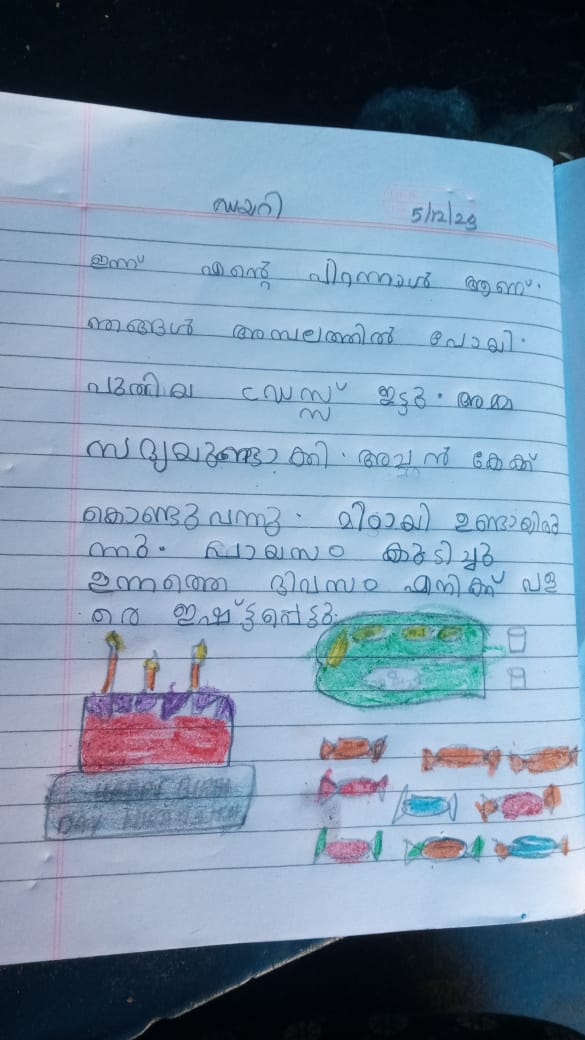 ഡയറി 5/12/23
ഇന്ന് എന്റെ പിറന്നാൾ ആണ്.
ഞങ്ങൾ അമ്പലത്തിൽ പോയി.
പുതിയ ഡ്രസ്സ് ഇട്ടു. അമ്മ
സദ്യയുണ്ടാക്കി. അച്ചൻ കേക്ക്
കൊണ്ടുവന്നു. മിഠായി ഉണ്ടായിരു
ന്നു. പായസം കുടിച്ചു
ഇന്നത്തെ ദിവസം എനിക്ക് വള
രെ ഇഷ്ട്ടപ്പെട്ടു.
HAPPY BIRTH
DAY